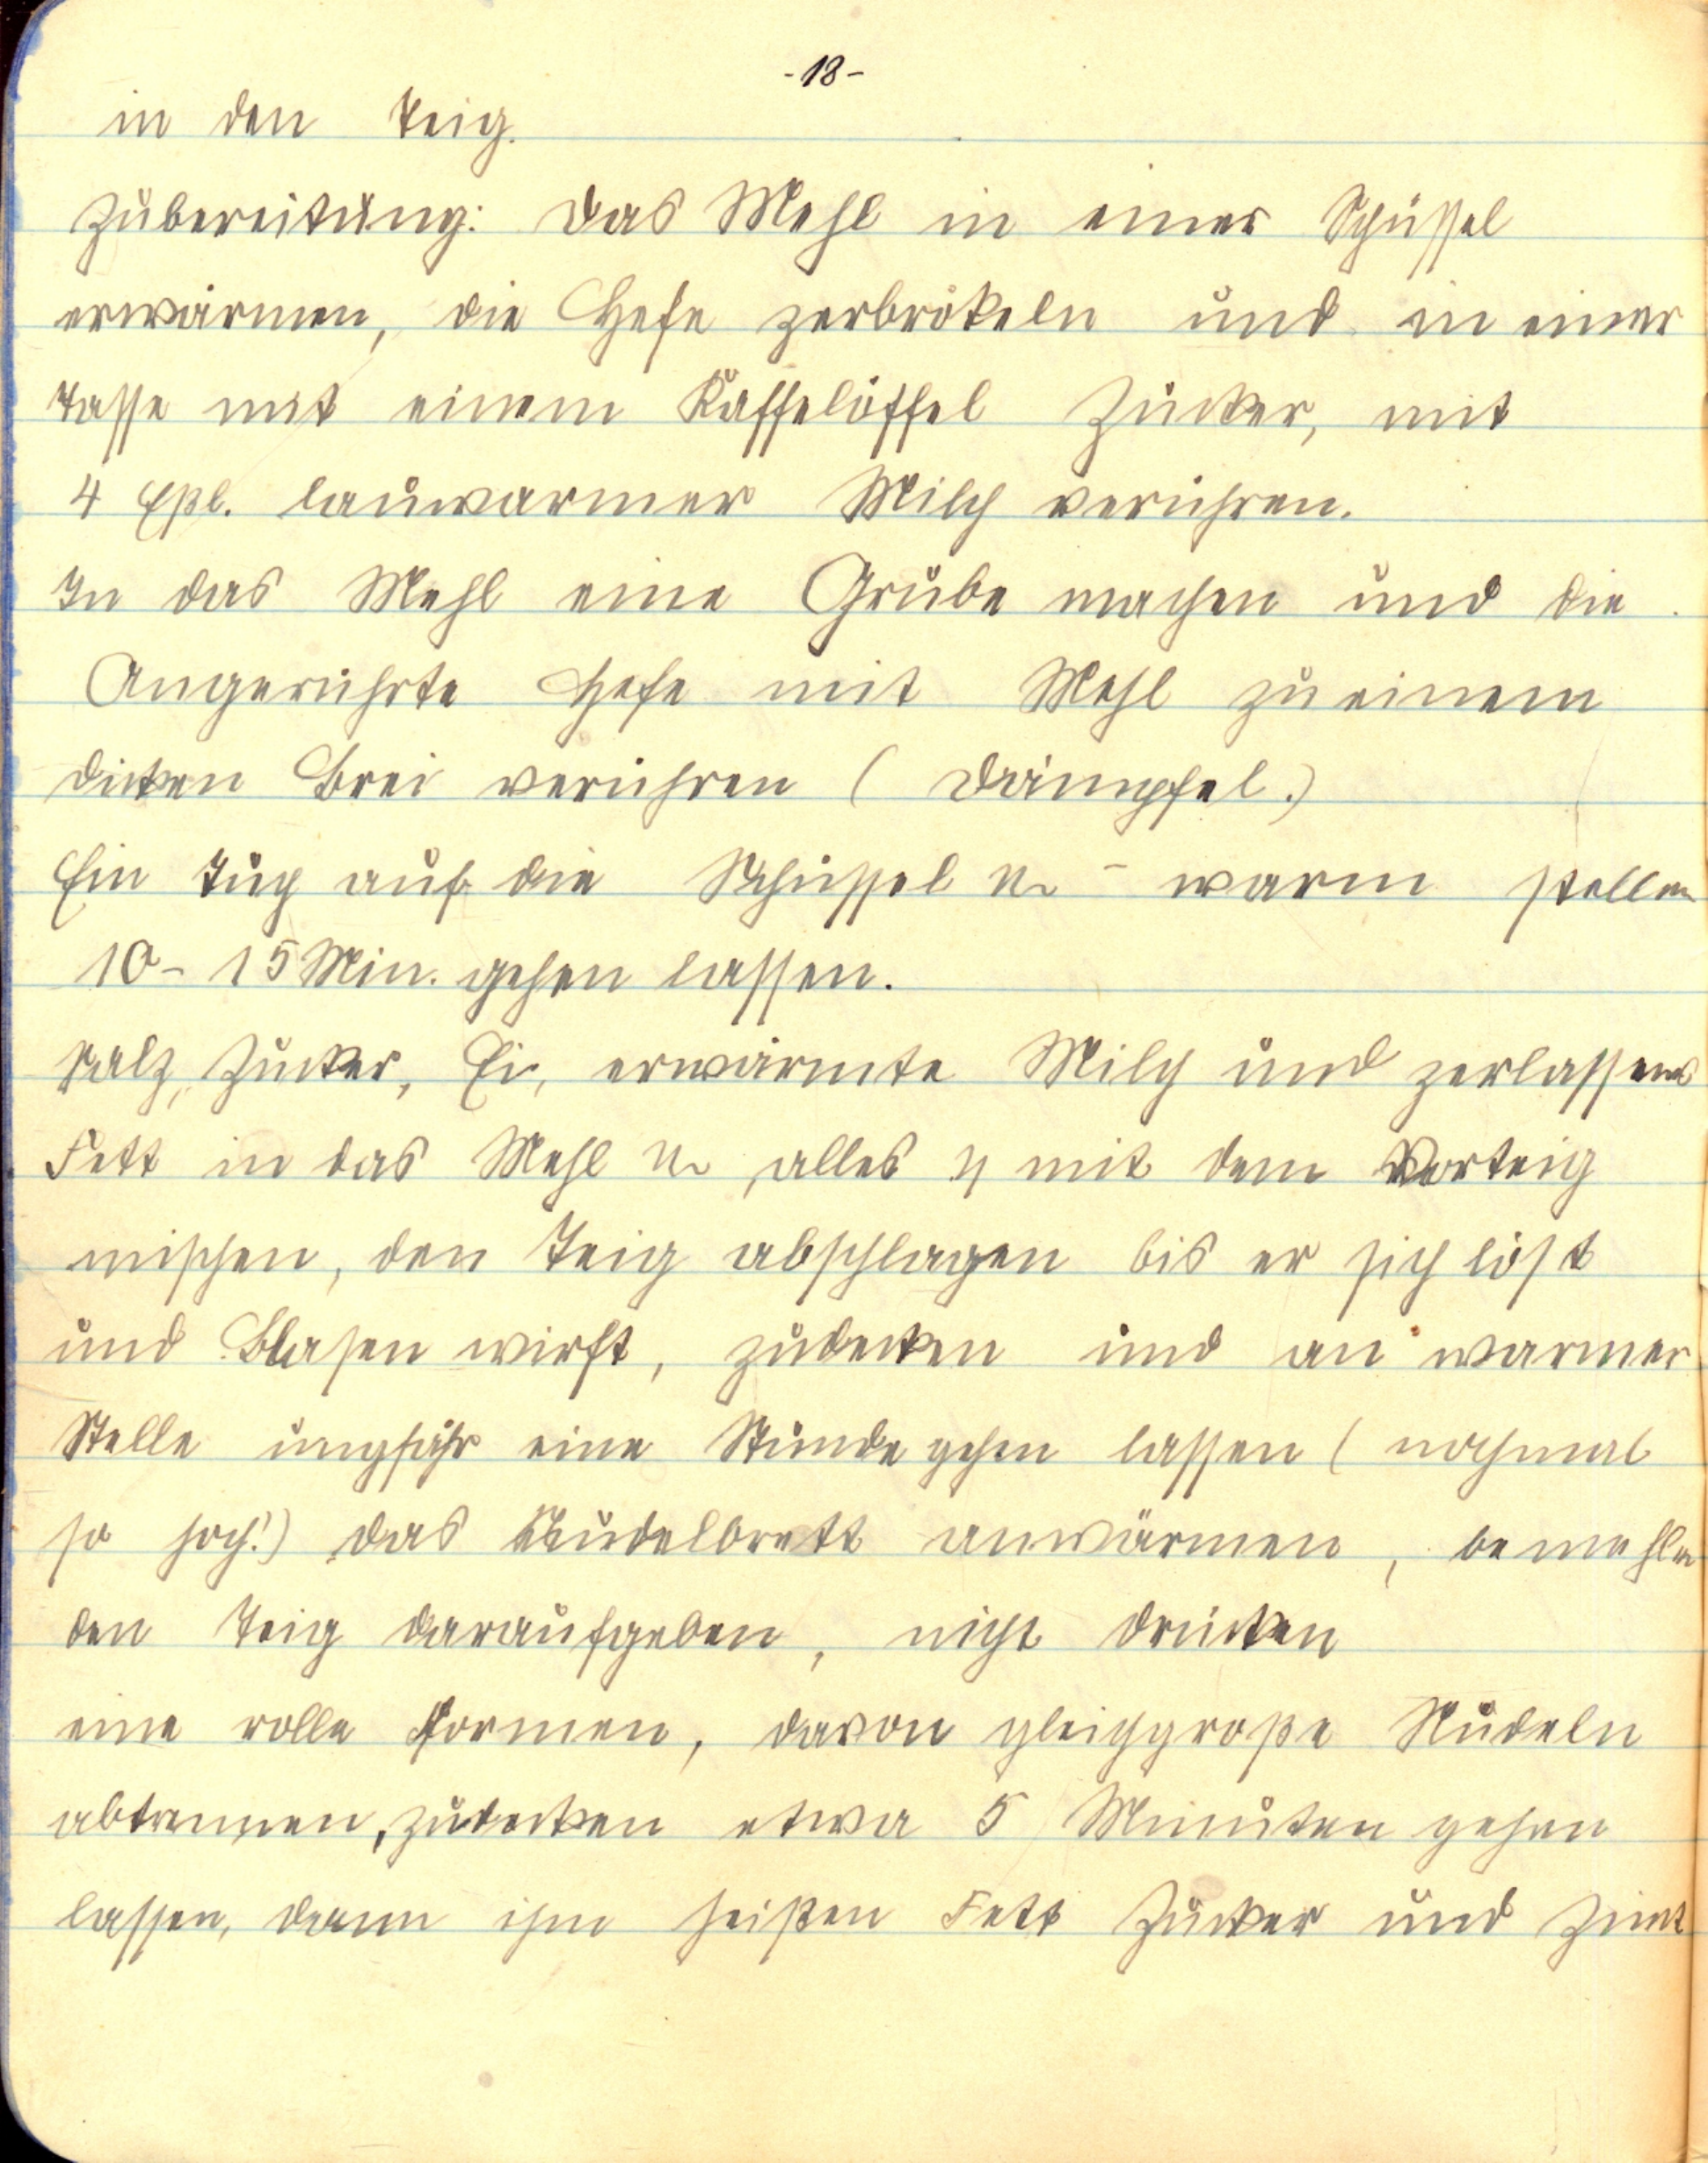 -18-
in den Teig.
Zubereitung: Das Mehl in einer Schüssel
erwärmen, die Hefe zerbrökeln und in einer
Tasse mit einem Kaffelöffel Zucker, mit
4 Eßl. lauwarmer Milch verühren.
In das Mehl eine Grube machen und die
Angerührte Hefe mit Mehl zu einem
dicken Brei verühren (Dämpfel.)
Ein Tuch auf die Schüssel u. - warm stellen
10-15 Min. gehen lassen.
Salz, Zucker, Ei, erwärmte Milch und zerlassenes
Fett in das Mehl u. alles mit dem Vorteig
mischen, den Teig abschlagen bis er sich löst
und Blasen wirft, zudecken und an warmer
Stelle ungfähr eine Stunde gehen lassen (nochmal
so hoch!) das Nudelbrett anwärmen, bemehlen
den Teig daraufgeben, nicht drücken
eine rolle Formen, davon gleichgroße Nudeln
abtrennen, zudecken etwa 5 Minuten gehen
lassen, dann ihm heißen Fett Zucker und Zimt